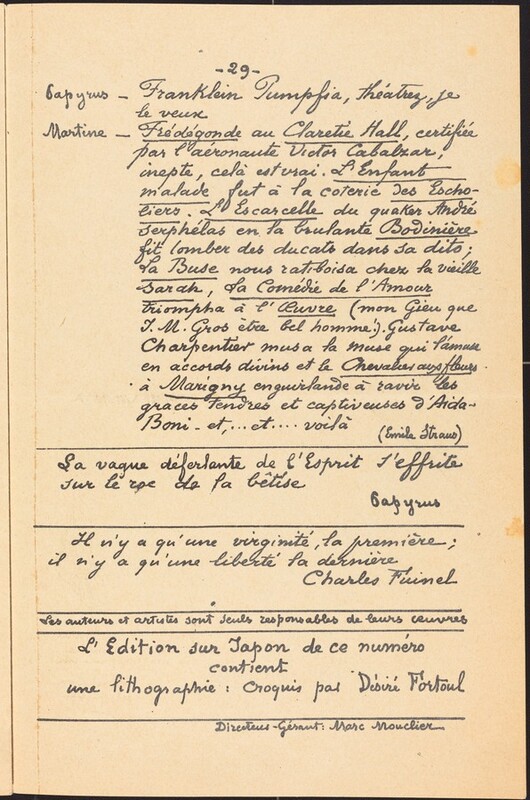 -29-
Papyrus — Franklein Pumpfia, théatrez, je
le veux
Martine — Frédégonde au Claretie Hall, certifiée
par l'aéronaute Victor Cabalzar,
inepte, celà est vrai. L'Enfant
malade fut à la coterie des Escho-
liers. L'Escarcelle du quaker André
Serphélas en la brulante Bodinière
fit tomber des ducats dans sa dito;
La Buse nous ratiboisa chez la vieille
Sarah, La Comédie de l'Amour
triompha à l'Œuvre (mon Gieu que
J. M. Gros être bel homme!). Gustave
Charpentier musa la muse qui l'amuse
en accords divins et le Chevalier aux fleurs
à Marigny enguirlande à ravir les
graces tendres et captiveuses d'Aïda-
Boni - et,... et.... voilà
(Emile Straus)
La vague déferlante de l'Esprit s'effrite
sur le roc de la bêtise
Papyrus
Il n'y a qu'une virginité, la première;
il n'y a qu'une liberté la dernière
Charles Fuinel
Les auteurs et artistes sont seuls responsables de leurs œuvres
L'Edition sur Japon de ce numéro
contient
une lithographie : Croquis par Désiré Fortoul
Directeur-Gérant: Marc Mouclier